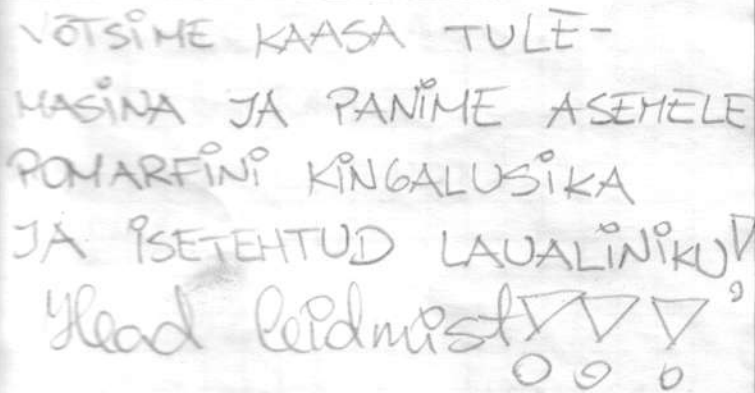 VÕTSIME KAASA TULE-
MASINA JA PANIME ASEMELE
POMARFINI KINGALUSIKA
JA ISETEHTUD LAUALINIKU!
Head leidmist!!!